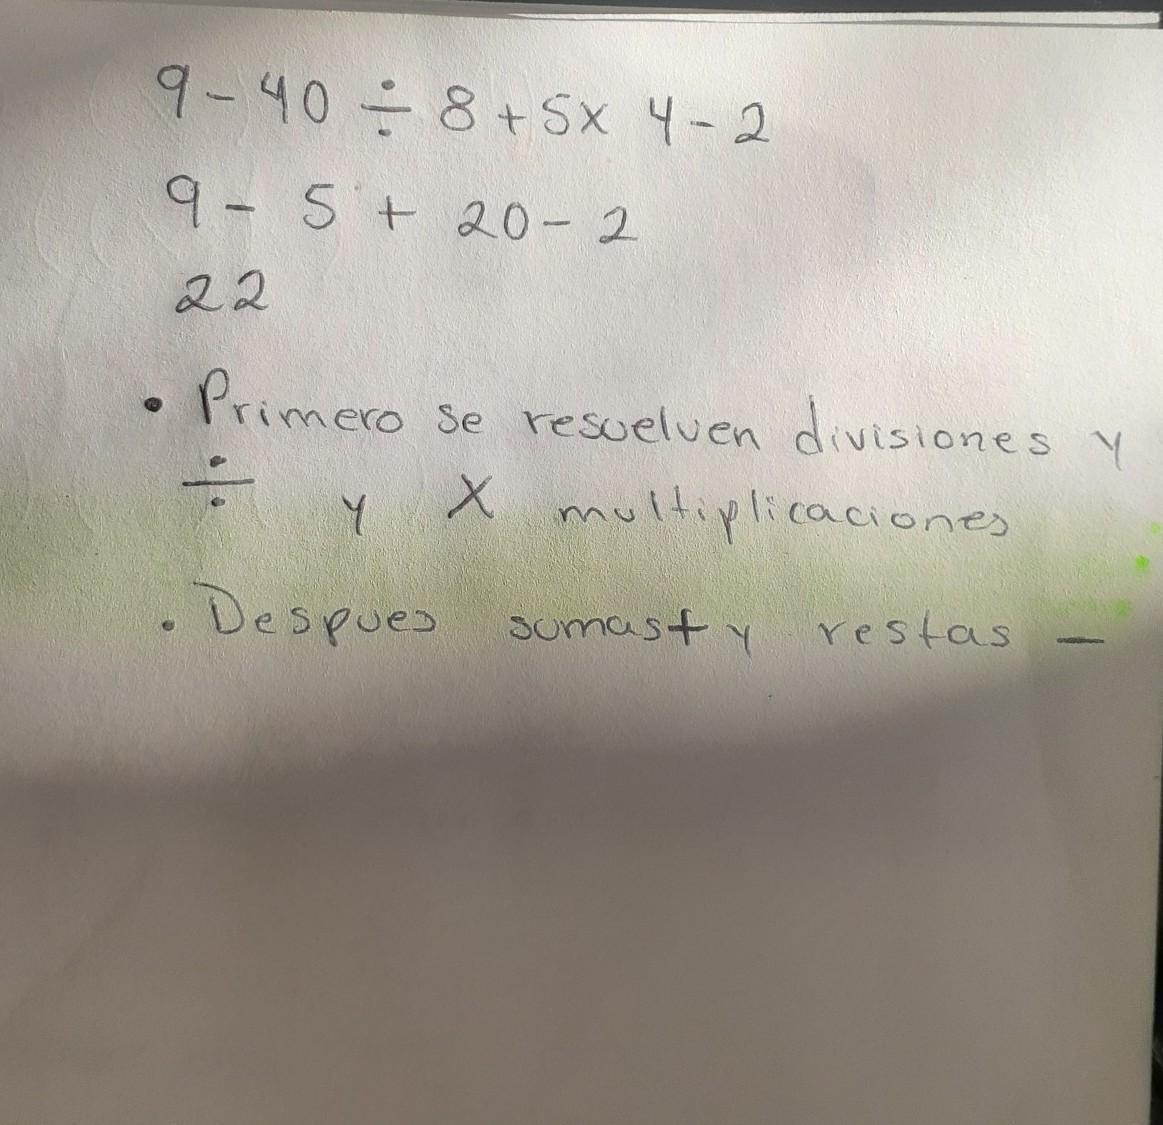 9 - 40 ÷ 8 + 5x 4 - 2
9 - 5 + 20 - 2
22
• Primero se resuelven divisiones y
÷ y X multiplicaciones
• Despues sumas + y restas -